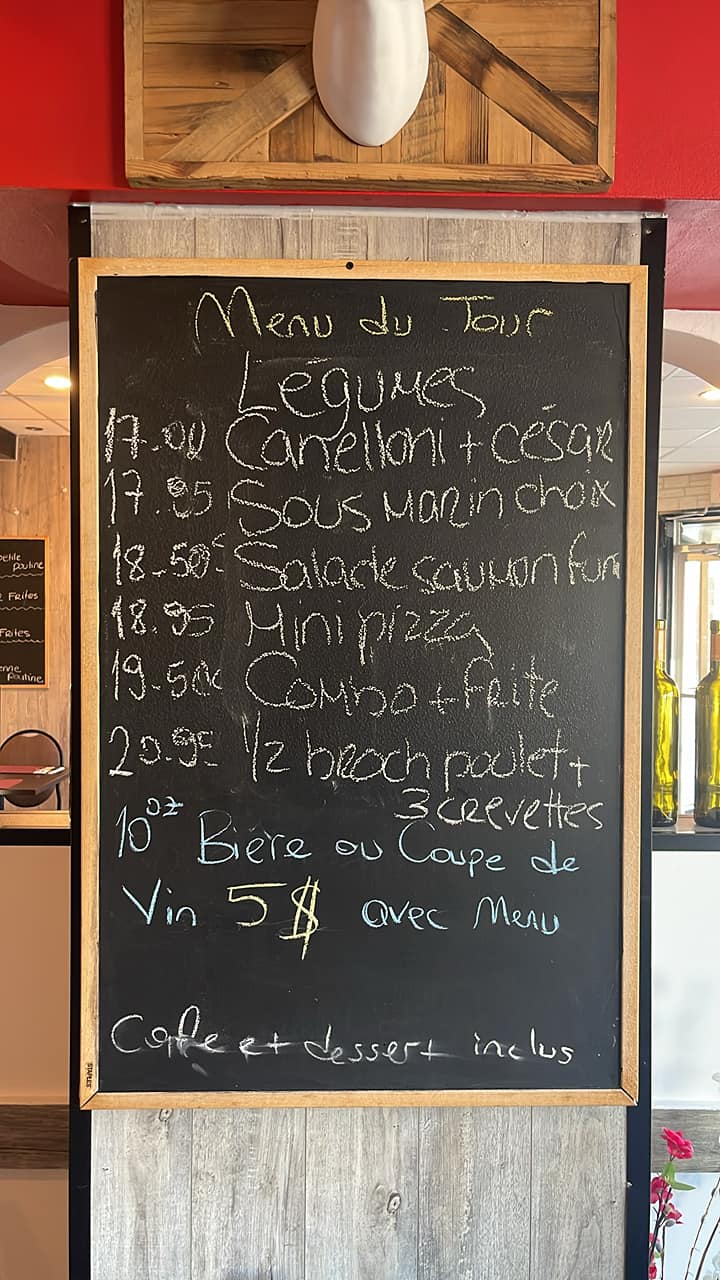 Menu du Jour
Légumes
17.00 Canelloni + césar
17.95 Sous marin choix
18.50 Salade saumon fum
18.95 Mini pizza
19.50 Combo + frite
20.95 1/2 broch poulet +
3 crevettes
10oz Bière ou Coupe de
Vin 5$ avec Menu
Cafe et dessert inclus
STAPLES
poutine
Frites
Frites
Poutine